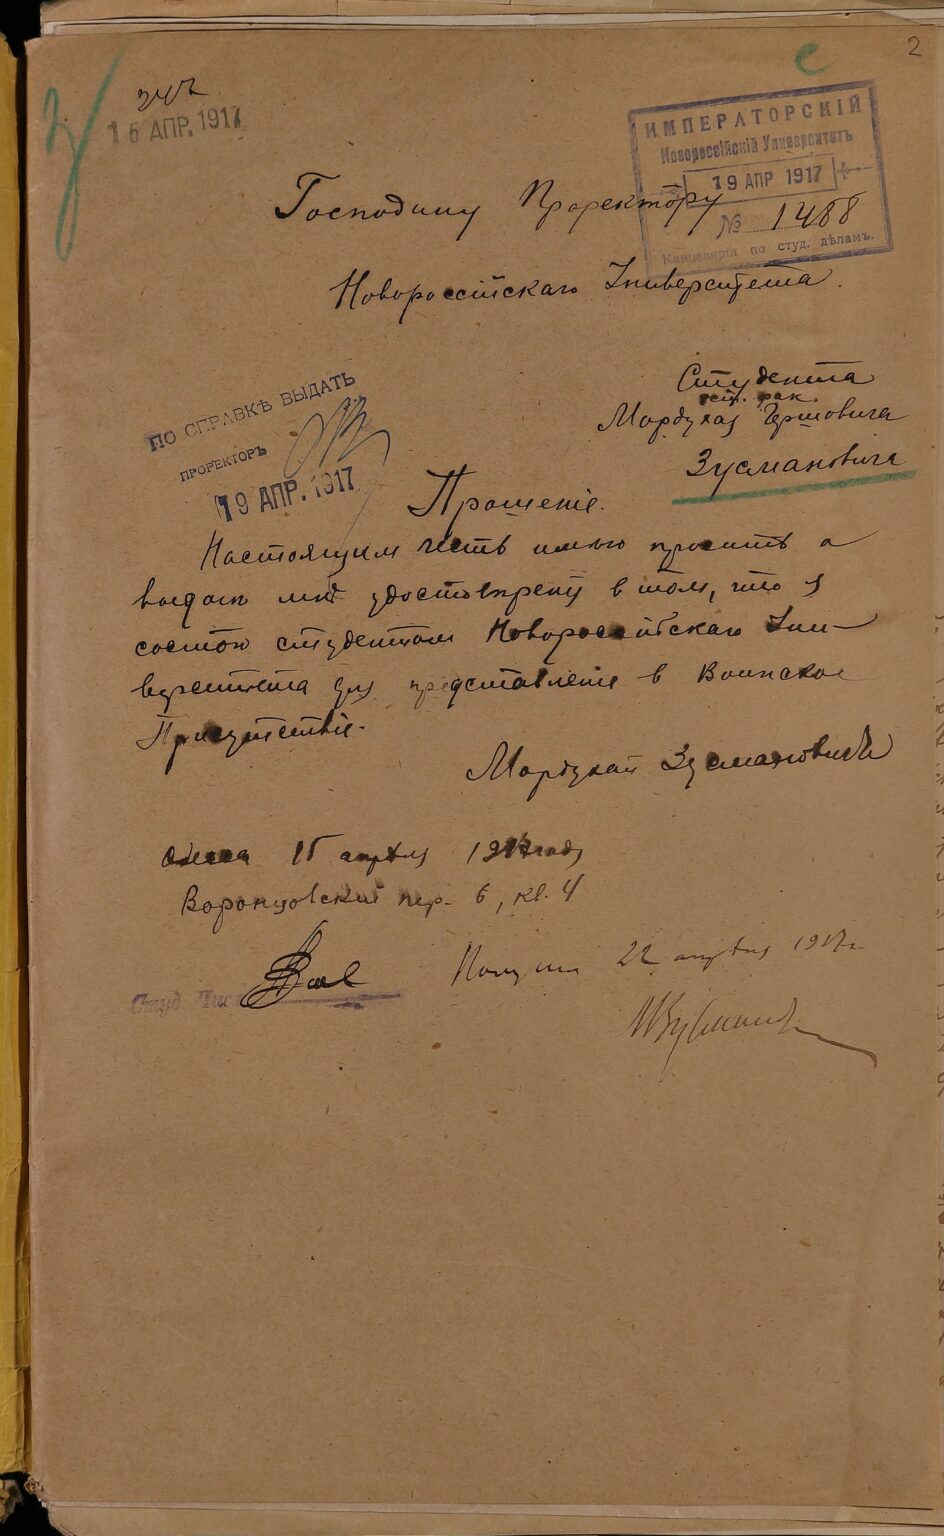 2
с
З
342
16 АПР. 1917
ИМПЕРАТОРСКІЙ
Новороссійскій Университетъ
19 АПР 1917
№ 1488
Канцелярія по студ. дѣламъ.
Господину Проректору
Новороссійскаго Университета.
Студента
ест. фак.
Мордухая Гершовича
Зусмановича
ПО СПРАВКѢ ВЫДАТЬ
ПРОРЕКТОРЪ
19 АПР. 1917
Прошеніе.
Настоящим честь имѣю просить о
выдачѣ мнѣ удостовѣренія в том, что я
состою студентом Новороссійскаго Уни-
верситета для представленія в Воинское
Присутствіе.
Мордухай Зусмановичъ
Одесса 15 апрѣля 1917 года
Воронцовский пер. 6, кв. 4
Получил 22 апрѣля 1917 г.
Студ.
МЗусманов